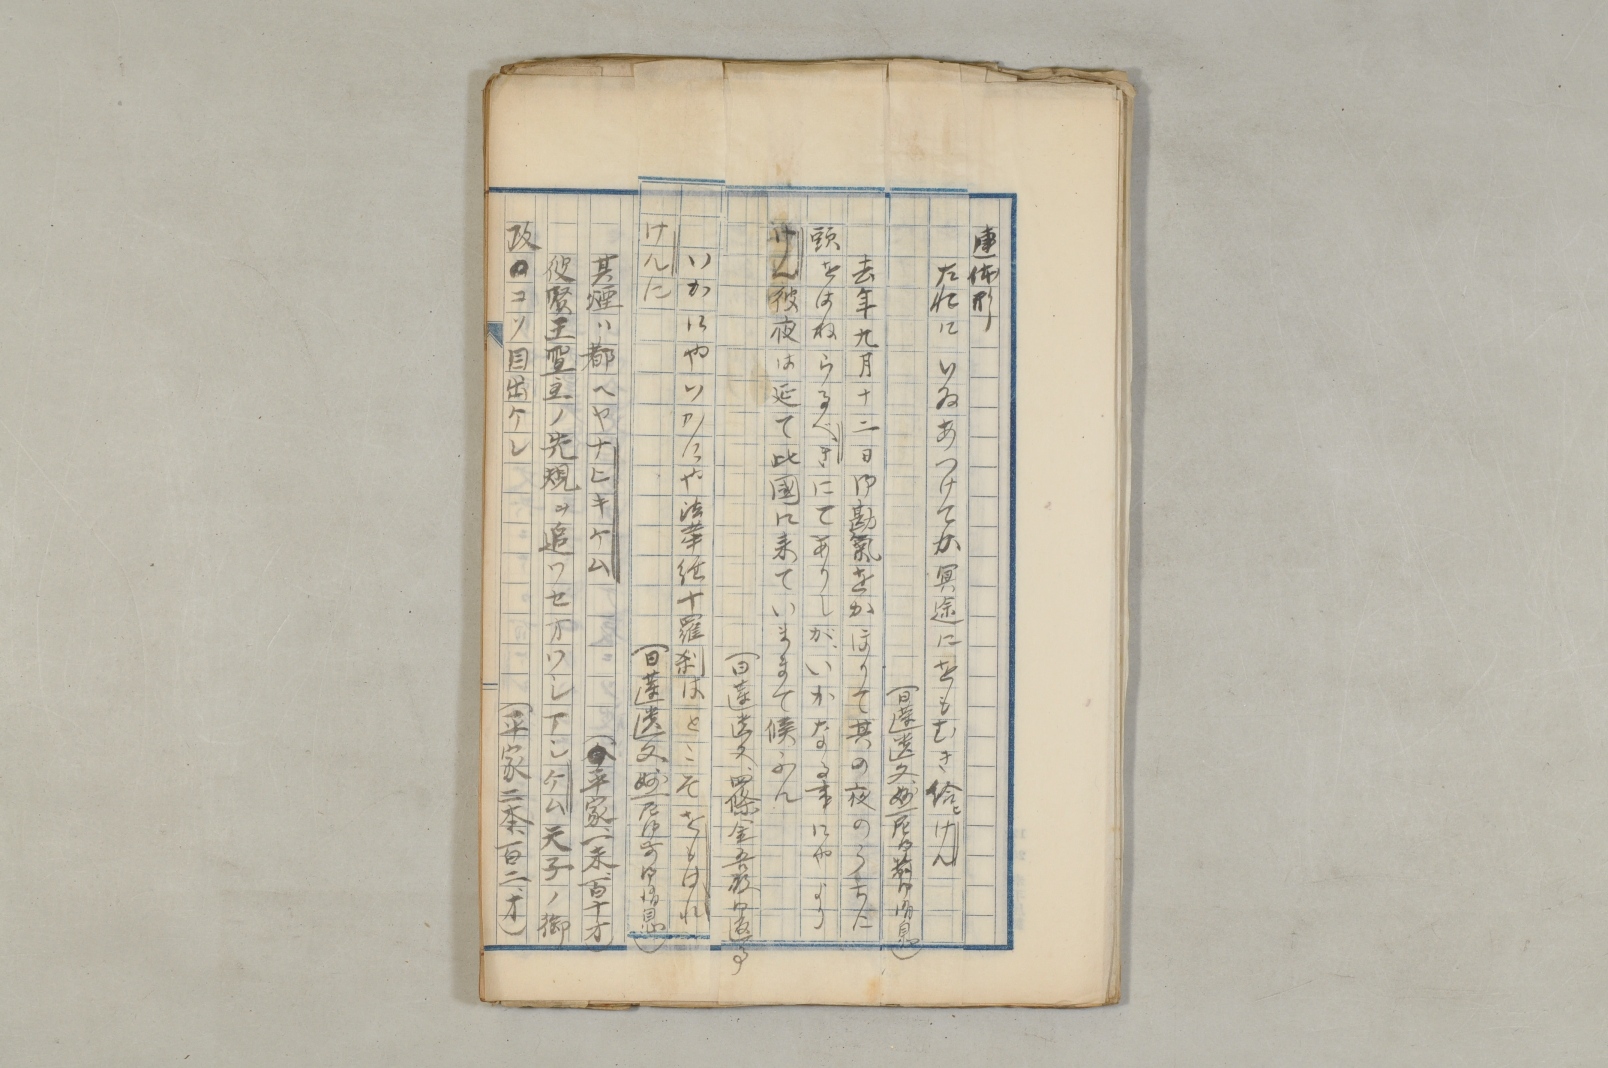 連体形
たれにいゐあつけてか冥途にをもむき給けん
(日蓮遺文、妙一尼御前御消息)
去年九月十二日御勘氣をかほりて其の夜のうちに
頭をはねらるべきにてありしが、いかなる事にやより
けん彼夜は延て此國に来ていままで候に
(日蓮遺文、四條金吾殿御返事
いかにやいかにや法華経十羅刹はとこそをもはれ
けんに
(日蓮遺文妙一尼御前御消息)
其煙ハ都ヘヤナヒキケム
(平家、一末、百十オ)
彼賢王聖主ノ先規ヲ追ワセオワシマシケム天子ノ御
政コソ目出ケレ
(平家二本、百二、オ)